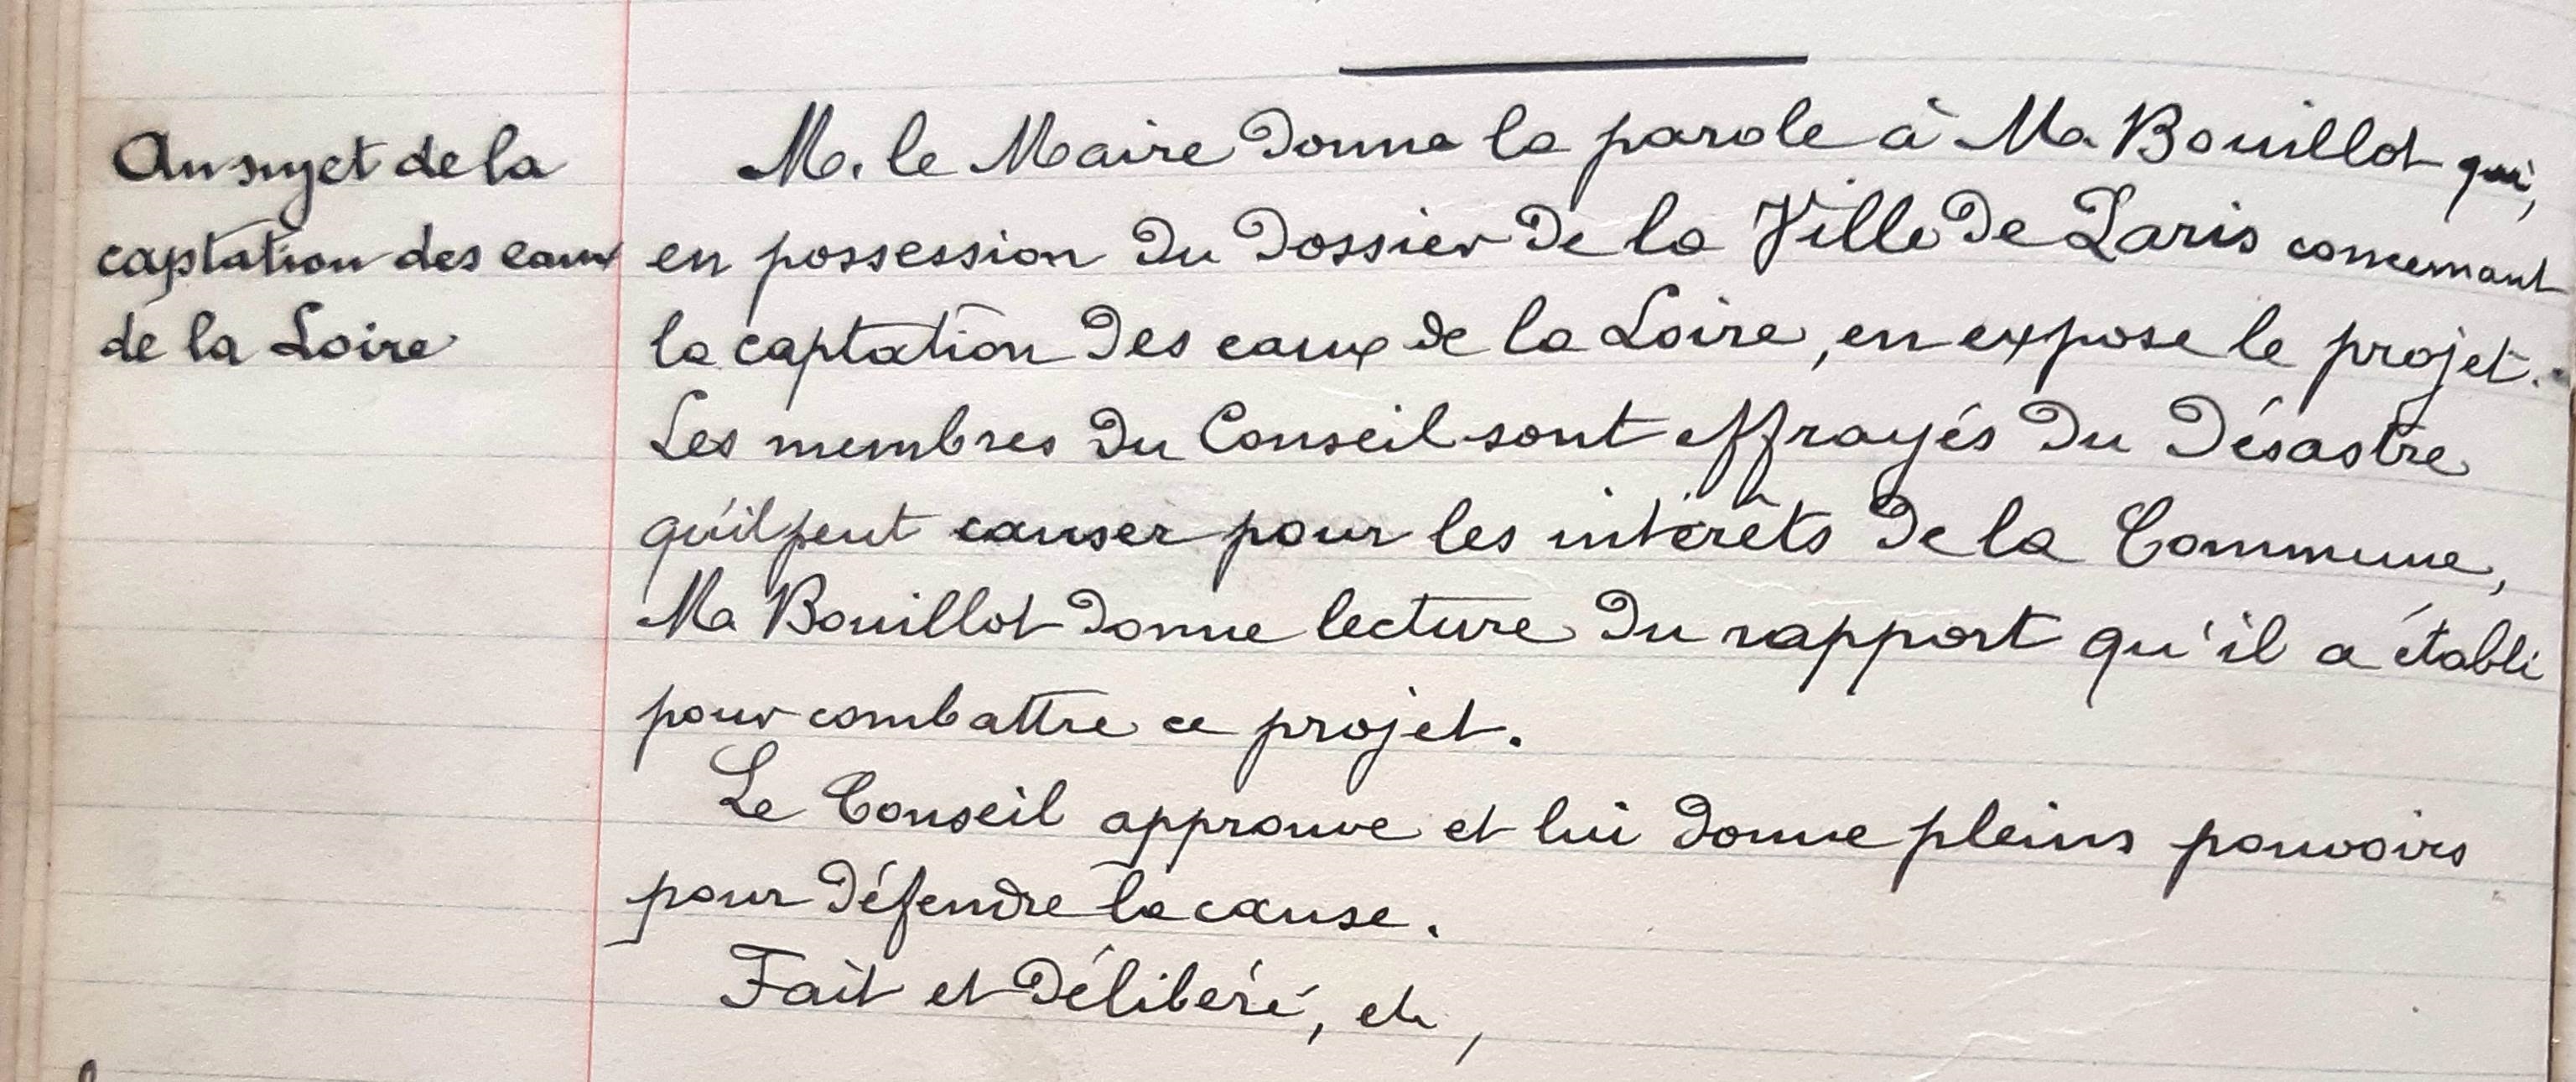 Au sujet de la
captation des eaux
de la Loire
M. le Maire donne la parole à Mr Bouillot qui,
en possession du dossier de la Ville de Paris concernant
la captation des eaux de la Loire, en expose le projet.
Les membres du Conseil sont effrayés du désastre
qu'il peut causer pour les intérêts de la Commune,
Mr Bouillot donne lecture du rapport qu'il a établi
pour combattre ce projet.
Le Conseil approuve et lui donne pleins pouvoirs
pour défendre la cause.
Fait et délibéré, etc,